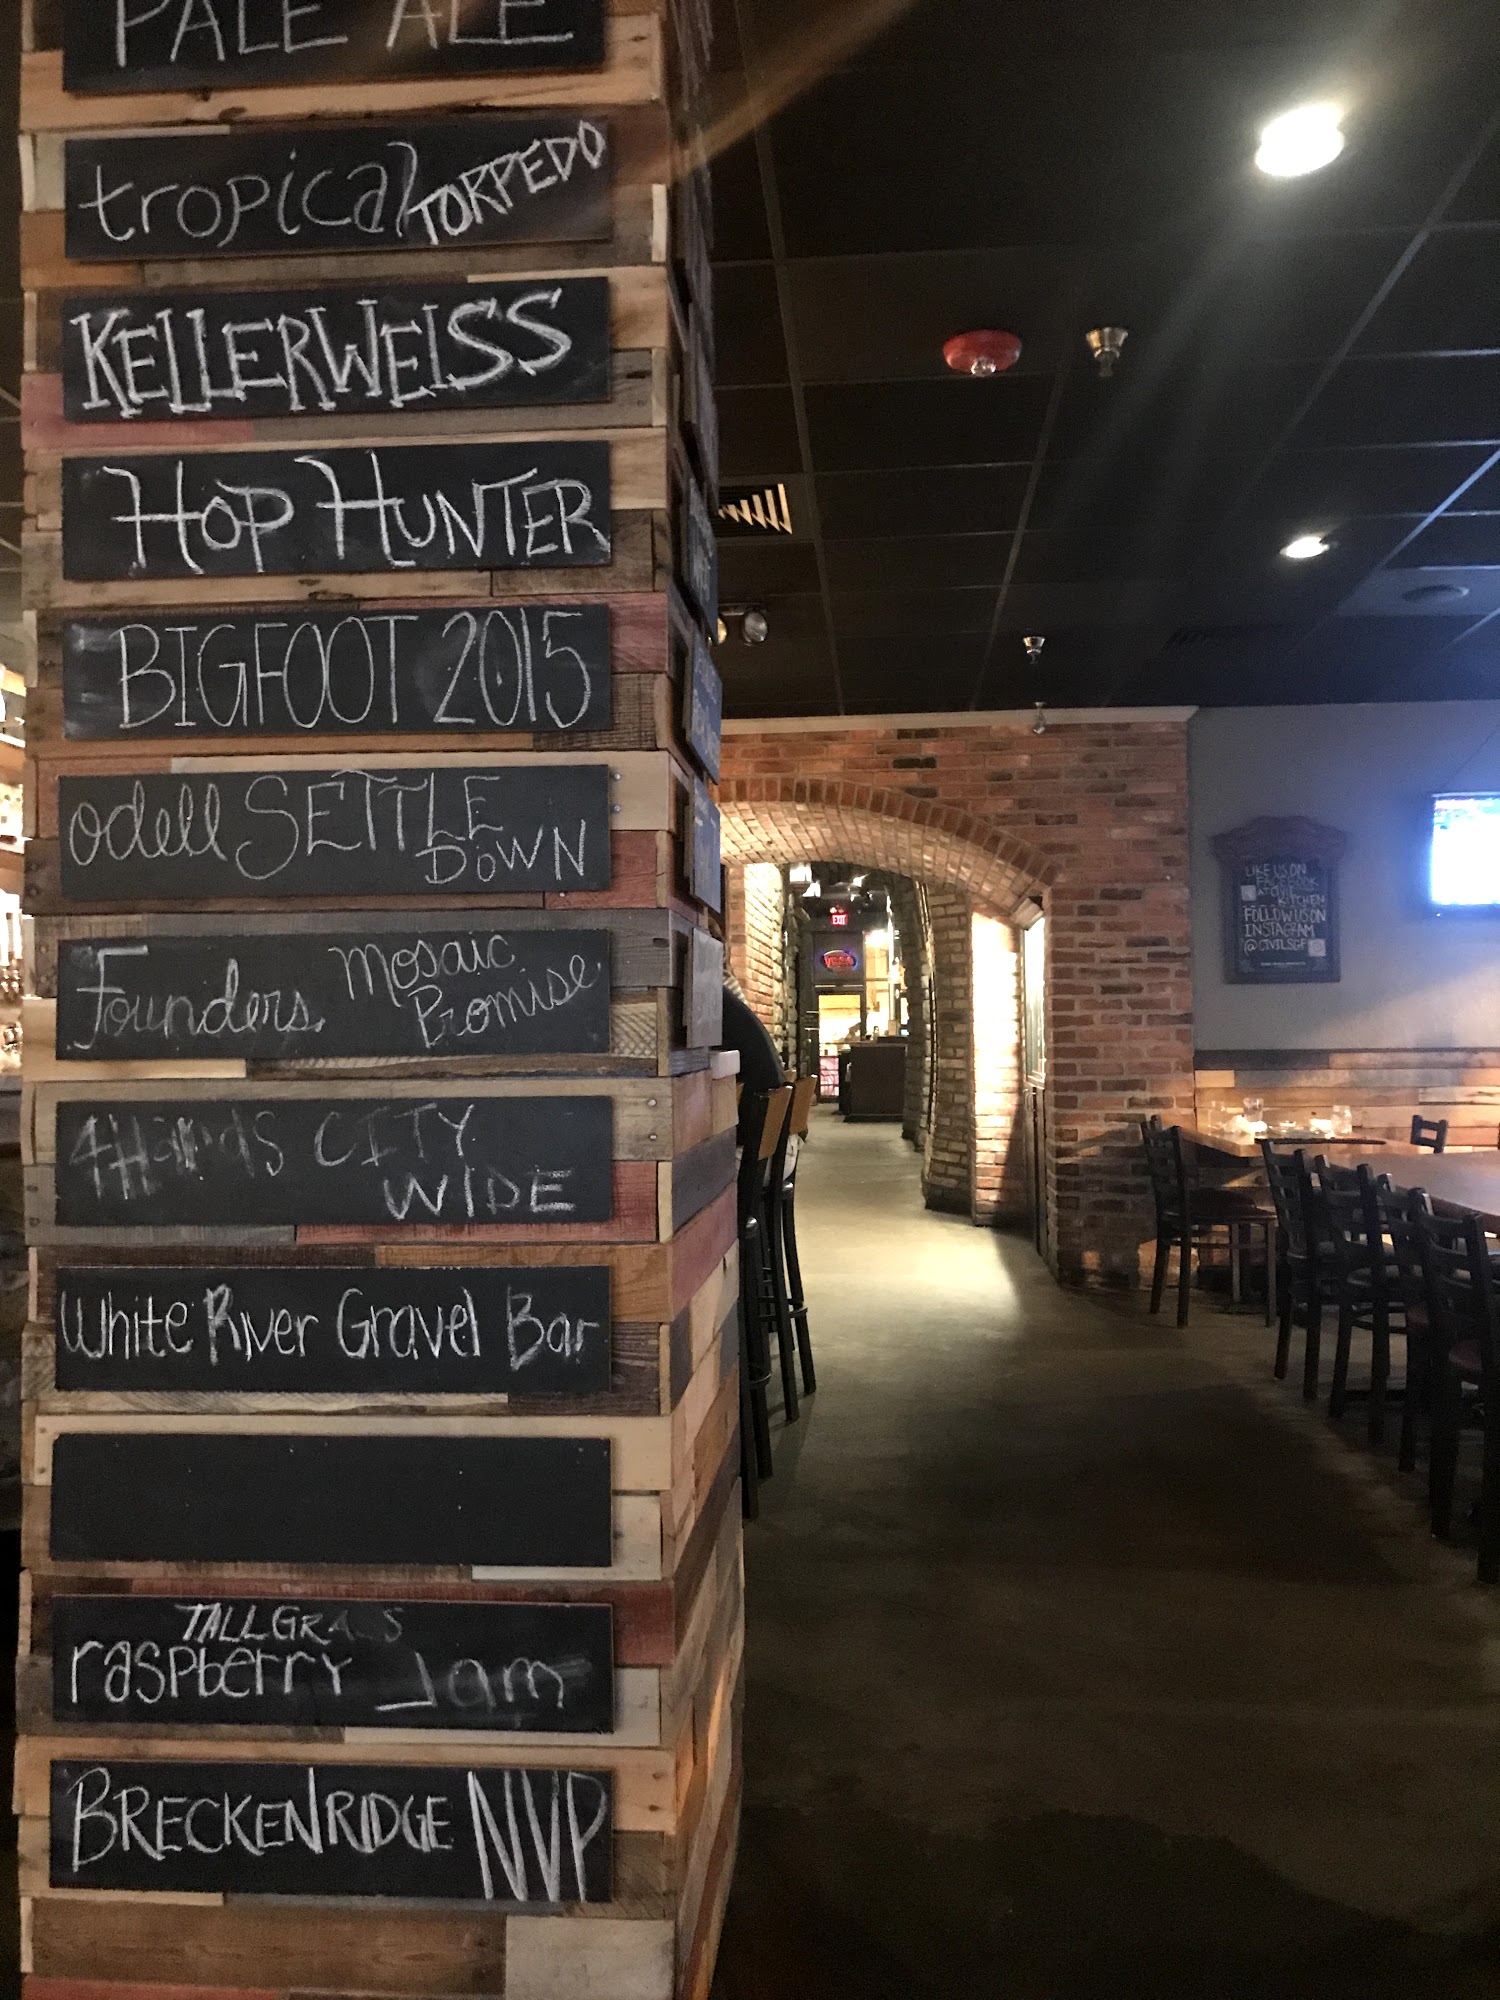 PALE ALE
tropical TORPEDO
KELLERWEISS
HOP HUNTER
BIGFOOT 2015
odell SETTLE
DOWN
Founders Mosaic
Promise
4Hands CITY
WIDE
White River Gravel Bar
TALLGRASS
raspberry Jam
BRECKENRIDGE NVP
EXIT
LIKE US ON
FACEBOOK
@CIVIL
KITCHEN
FOLLOW US ON
INSTAGRAM
@CIVILSGF